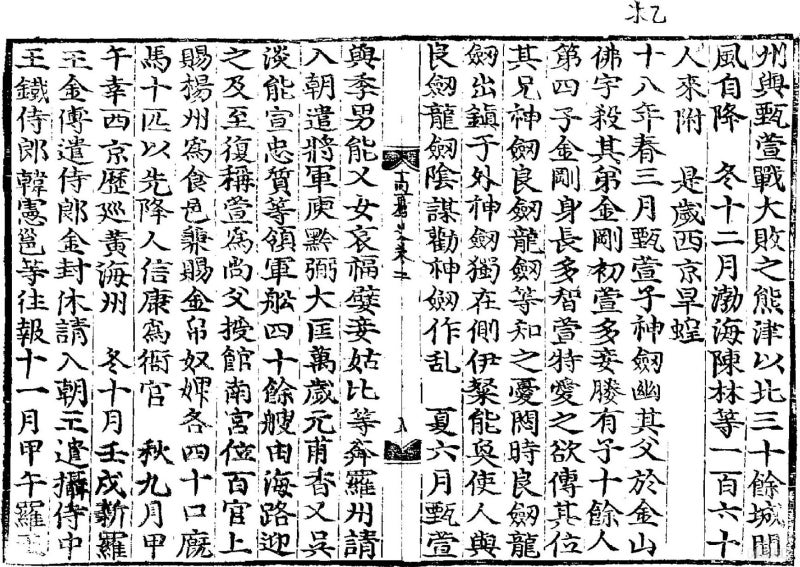 乙未
州與甄萱戰大敗之熊津以北三十餘城聞
風自降　冬十二月渤海陳林等一百六十
人來附　是歲西京旱蝗
十八年春三月甄萱子神劒幽其父於金山
佛宇殺其弟金剛初萱多妾媵有子十餘人
第四子金剛身長多智萱特愛之欲傳其位
其兄神劒良劒龍劒等知之憂悶時良劒龍
劒出鎭于外神劒獨在側伊粲能奐使人與
良劒龍劒陰謀勸神劒作乱　夏六月甄萱
高麗史卷二　八
與季男能乂女哀福嬖妾姑比等奔羅州請
入朝遣將軍庾黔弼大匡萬歲元甫香乂吳
淡能宣忠質等領軍舩四十餘艘由海路迎
之及至復稱萱爲尙父授館南宮位百官上
賜楊州爲食邑兼賜金帛奴婢各四十口廐
馬十匹以先降人信康爲衙官　秋九月甲
午幸西京歷巡黃海州　冬十月壬戌新羅
王金傅遣侍郎金封休請入朝王遣攝侍中
王鐵侍郎韓憲邕等往報十一月甲午羅王